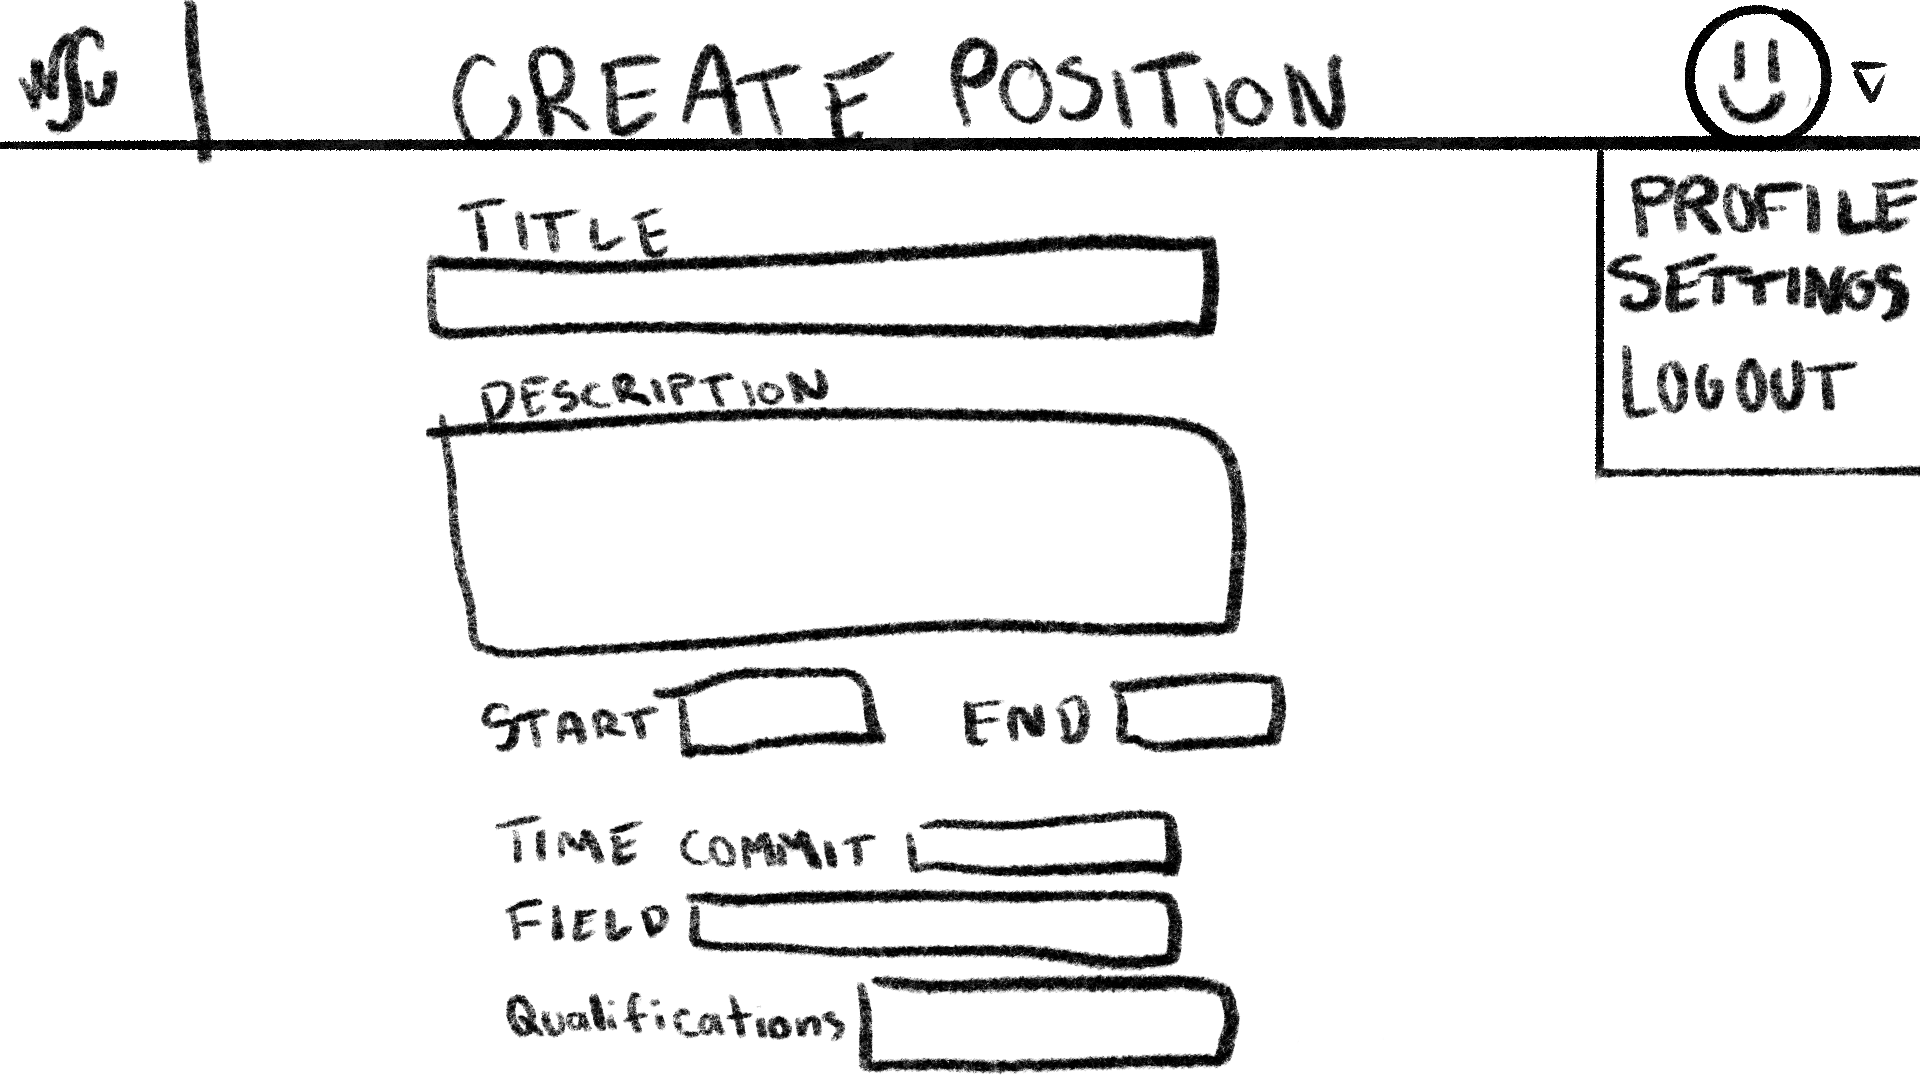 WSU
CREATE POSITION
PROFILE
SETTINGS
LOGOUT
TITLE
DESCRIPTION
START END
TIME COMMIT
FIELD
Qualifications